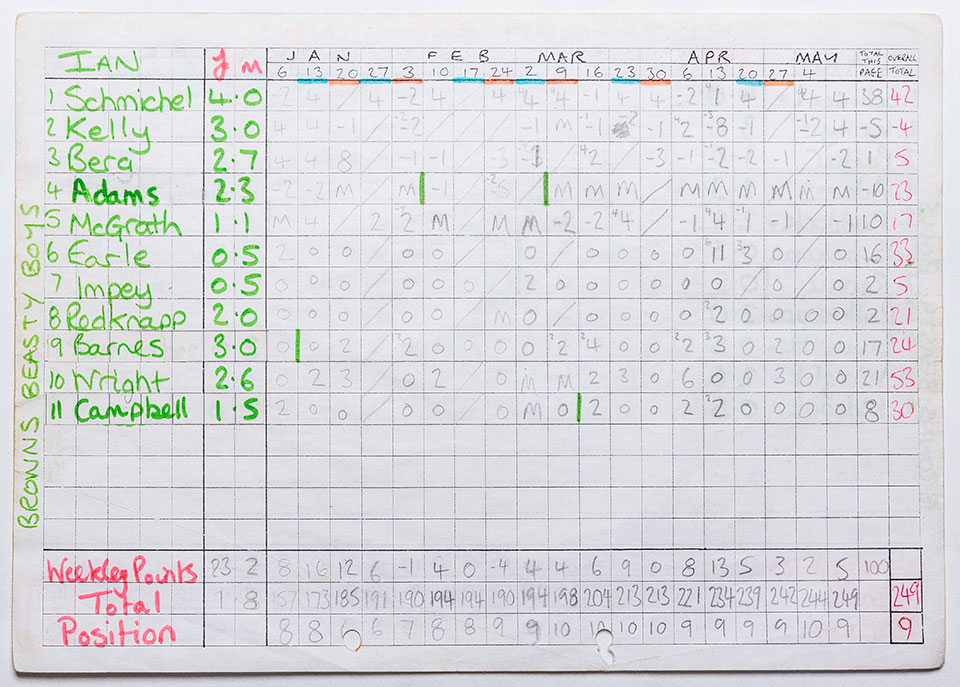 IAN £ M J A N F E B MAR APR MAY TOTAL THIS PAGE OVERALL TOTAL
6 13 20 27 3 10 17 24 2 9 16 23 30 6 13 20 27 4
1 Schmichel 4.0 2 4 / 4 -2 4 4 4 4 -1 4 4 -2 1 4 / 4 4 38 42
2 Kelly 3.0 4 4 -1 / -2 / -1 M -1 -1 2 -8 -1 / -2 4 -5 -4
3 Berg 2.7 4 4 8 / -1 -1 / 2 / -3 -1 -2 -2 -1 / -2 1 5
4 Adams 2.3 -2 -2 M / M -1 / M M M M M M M M M -10 23
5 McGrath 1.1 M 4 / 2 -2 M / M M -2 -2 4 / -1 4 -1 -1 / -1 10 17
6 Earle 0.5 2 0 0 / 0 0 / 0 / 0 0 0 0 11 3 0 / 0 16 33
7 Impey 0.5 0 0 0 / 0 0 0 / 2 0 0 0 0 0 0 / 0 / 0 2 5
8 Redknapp 2.0 0 0 0 / 0 0 / M 0 / 0 0 0 0 2 0 0 0 0 2 21
9 Barnes 3.0 0 0 2 / 2 0 0 0 0 2 4 0 0 2 3 0 2 0 0 17 24
10 Wright 2.6 0 2 3 / 0 2 / 0 M M 2 3 0 6 0 0 3 0 0 21 53
11 Campbell 1.5 2 0 0 / 0 0 / 0 M 0 2 0 0 2 2 0 0 0 0 8 30
BROWNS BEASTY BOYS
Weekley Points 23 2 8 16 12 6 -1 4 0 -4 4 4 6 9 0 8 13 5 3 2 5 100
Total 8 157 173 185 191 190 194 194 190 194 198 204 213 213 221 234 239 242 244 249 249
Position 8 8 6 6 7 8 8 9 9 10 10 10 10 9 9 9 9 10 9 9